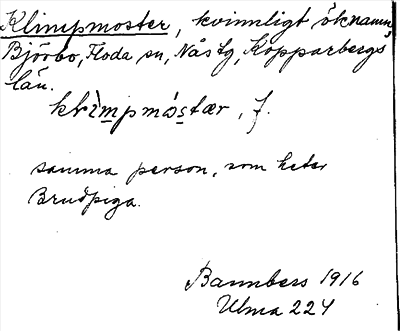 Klimpmoster, kvinnligt öknamn,
Björbo, Floda sn, Nås tg, Kopparbergs
län.
klìmpmòstær, f.
samma person, som heter
Brudpiga.
Bannbers 1916
Ulma 224